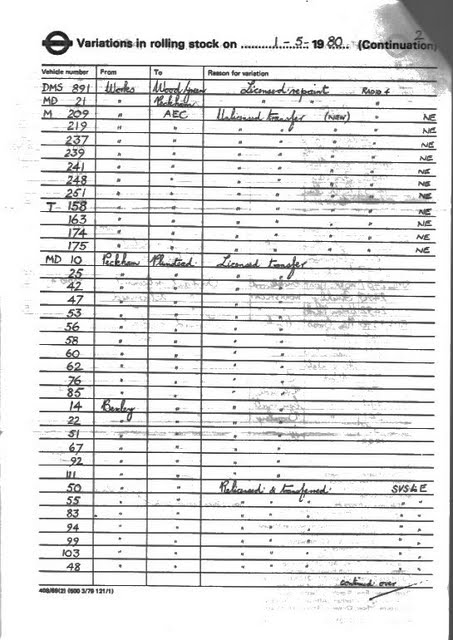 2
Variations in rolling stock on 1-5-1980 (Continuation)
Vehicle number From To Reason for variation
DMS 891 Works Wood Green Licensed repaint RADIO 4
MD 21 " Peckham " " "
M 209 " AEC Unlicensed transfer (NEW) " NE
219 " " " " " " NE
237 " " " " " " NE
239 " " " " " " NE
241 " " " " " " NE
248 " " " " " " NE
251 " " " " " " NE
T 158 " " " " " " NE
163 " " " " " " NE
174 " " " " " " NE
175 " " " " " " NE
MD 10 Peckham Plumstead Licensed transfer
25 " " " "
42 " " " "
47 " " " "
53 " " " "
56 " " " "
58 " " " "
60 " " " "
62 " " " "
76 " " " "
85 " " " "
14 Bexley " " "
22 " " " "
51 " " " "
67 " " " "
92 " " " "
111 " " " "
50 " " Relicensed & transferred
55 " " " " "
83 " " " " "
94 " " " " "
99 " " " " "
103 " " " " "
48 " " " " "
continued over
408/69(2) (600 3/79 121/1)